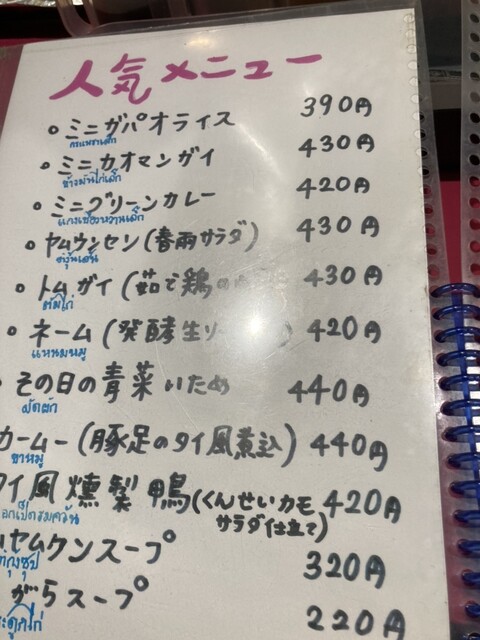 人気メニュー
ミニガパオライス 390円
กระเพราเล็ก
ミニカオマンガイ 430円
ข้าวมันไก่เล็ก
ミニグリーンカレー 420円
แกงเขียวหวานเล็ก
ヤムウンセン(春雨サラダ) 430円
ยำวุ้นเส้น
トムガイ(茹で鶏の 430円
ต้มไก่
ネーム(発酵生ソー 420円
แหนมหมู
その日の青菜いため 440円
ผัดผัก
カームー(豚足のタイ風煮込) 440円
ขาหมู
イ風燻製鴨(くんせいカモ 420円
サラダ仕立て)
อกเป็ดรมควัน
ヤムクンスープ 320円
กุ้งซุป
がらスープ 220円
ะดูกไก่